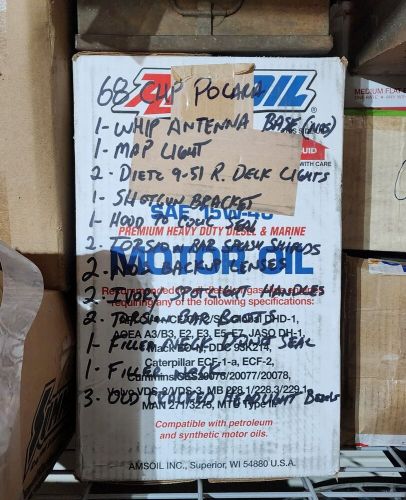 68 CHP POLARA
AMSOIL
®
1- WHIP ANTENNA BASE (NOS)
1- MAP LIGHT
UID
WITH CARE
2- DIETZ 9-51 R. DECK LIGHTS
1- SHOTGUN BRACKET
1- HOOD TO COWL SEAL
SAE 15W-40
PREMIUM HEAVY DUTY DIESEL & MARINE
2- TORSION BAR SPLASH SHIELDS
MOTOR OIL
2- NOS BACKUP LENSES
requiring any of the following specifications:
SPOTLIGHT HANDLES
2- TORSION BAR BOOTS
ACEA A3/B3, E2, E3, E5, E7, JASO DH-1,
1- FILLER NECK SEAL
Caterpillar ECF-1-a, ECF-2,
1- FILLER NECK
20076/20077/20078,
Volvo VDS-2/VDS-3, MB 228.1/228.3/229.1
3- OLD CRACKED HEADLIGHT
MAN 271/3275, Type
Compatible with petroleum
and synthetic motor oils.
AMSOIL INC., Superior, WI 54880 U.S.A.
MEDIUM FLAT